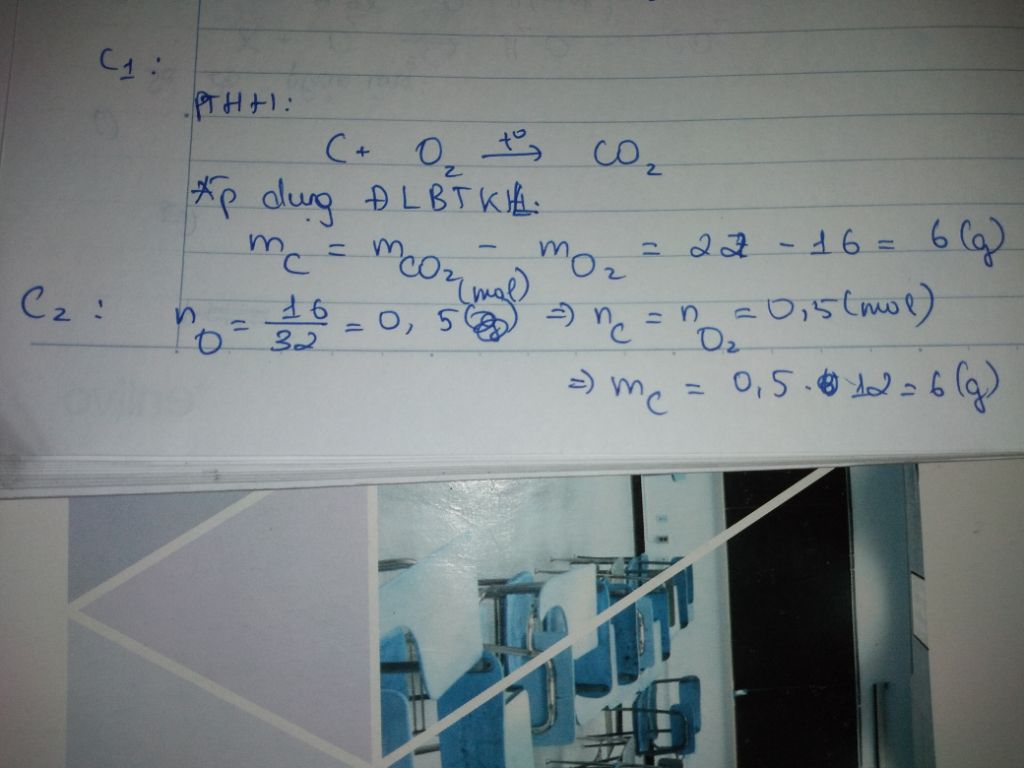 C1:
PTHH:
C + O2 t°→ CO2
Áp dụng ĐLBTKL:
mC = mCO2 - mO2 = 22 - 16 = 6 (g)
C2: nO = 16/32 = 0,5 (mol) => nC = nO2 = 0,5 (mol)
=> mC = 0,5 . 12 = 6 (g)